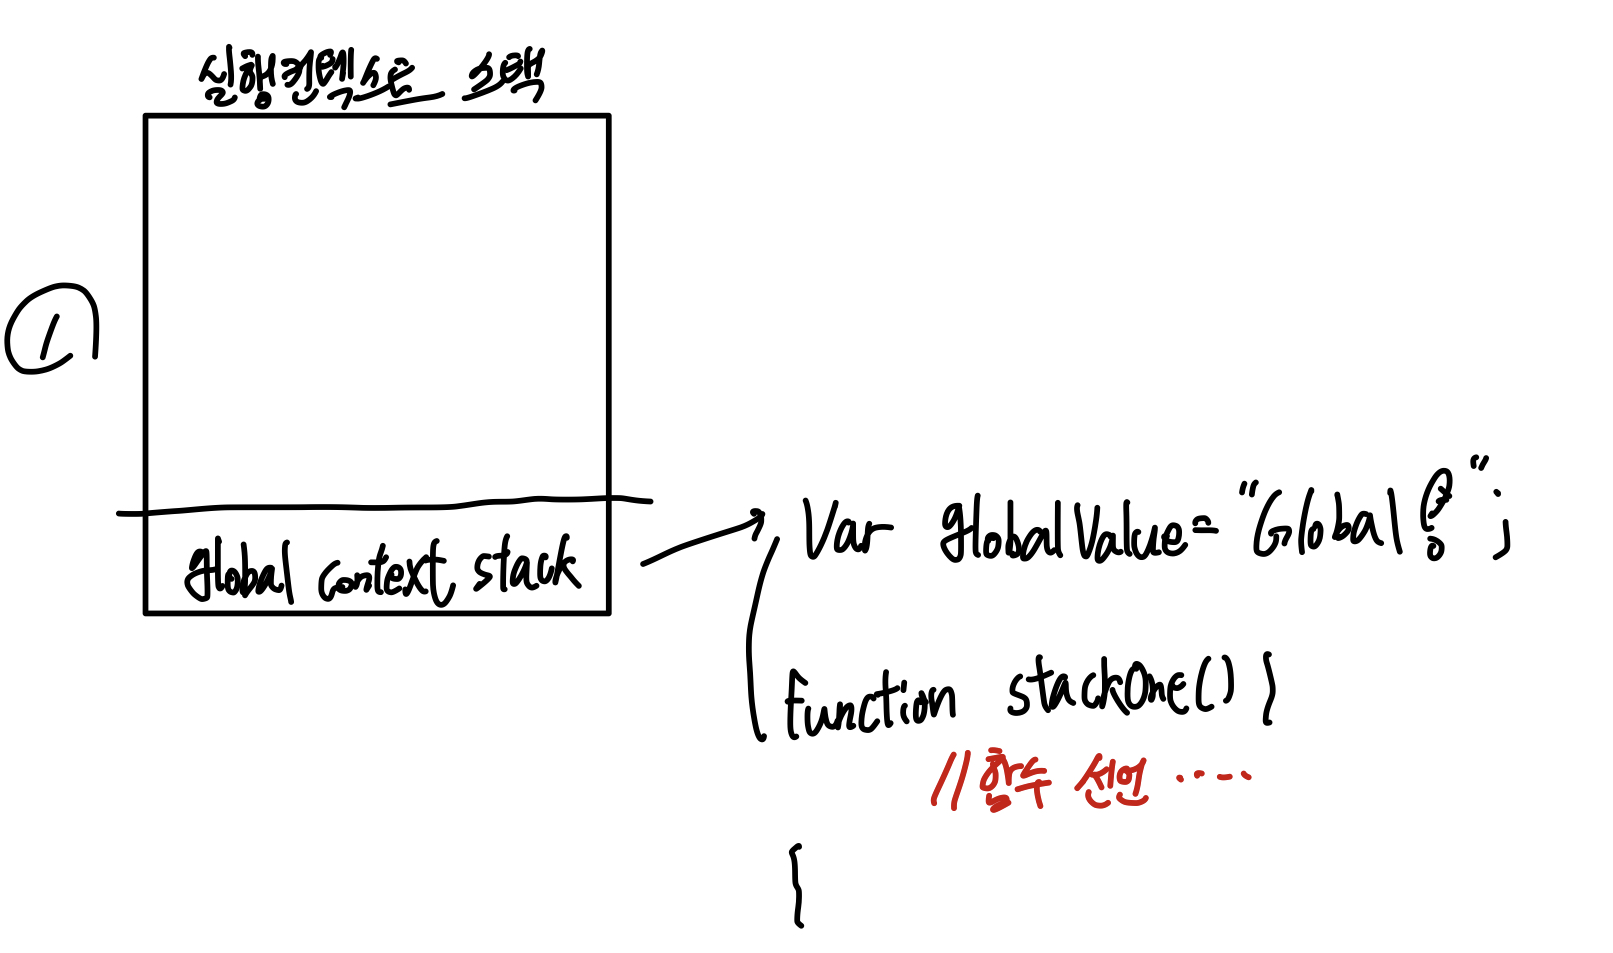 실행컨텍스트 스택
①
global context stack
Var globalValue = "Global@";
function stackOne() {
//함수 선언 ....
}